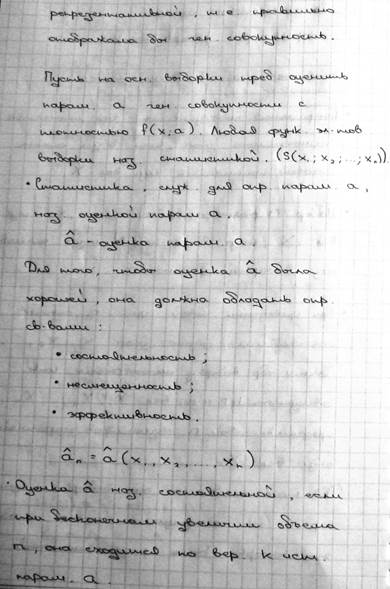 репрезентативной, т.е. правильно
отображала бы ген. совокупность.
Пусть на осн. выборки тред оценить
парам. a ген совокупности с
плотностью f(x,a). Любая функ эл-тов
выборки наз. статистикой. (S(x₁; x₂; ...; xₙ))
• Статистика, служ. для опр. парам. a,
наз. оценкой парам a.
â - оценка парам. a.
Для того, чтобы оценка â была
хорошей, она должна обладать опр.
св-вами:
• состоятельность;
• несмещенность;
• эффективность.
âₙ = â (x₁, x₂, ..., xₙ)
• Оценка â наз. состоятельной, если
при бесконечном увеличи объема
n, она сходится по вер. к ист.
парам. a.